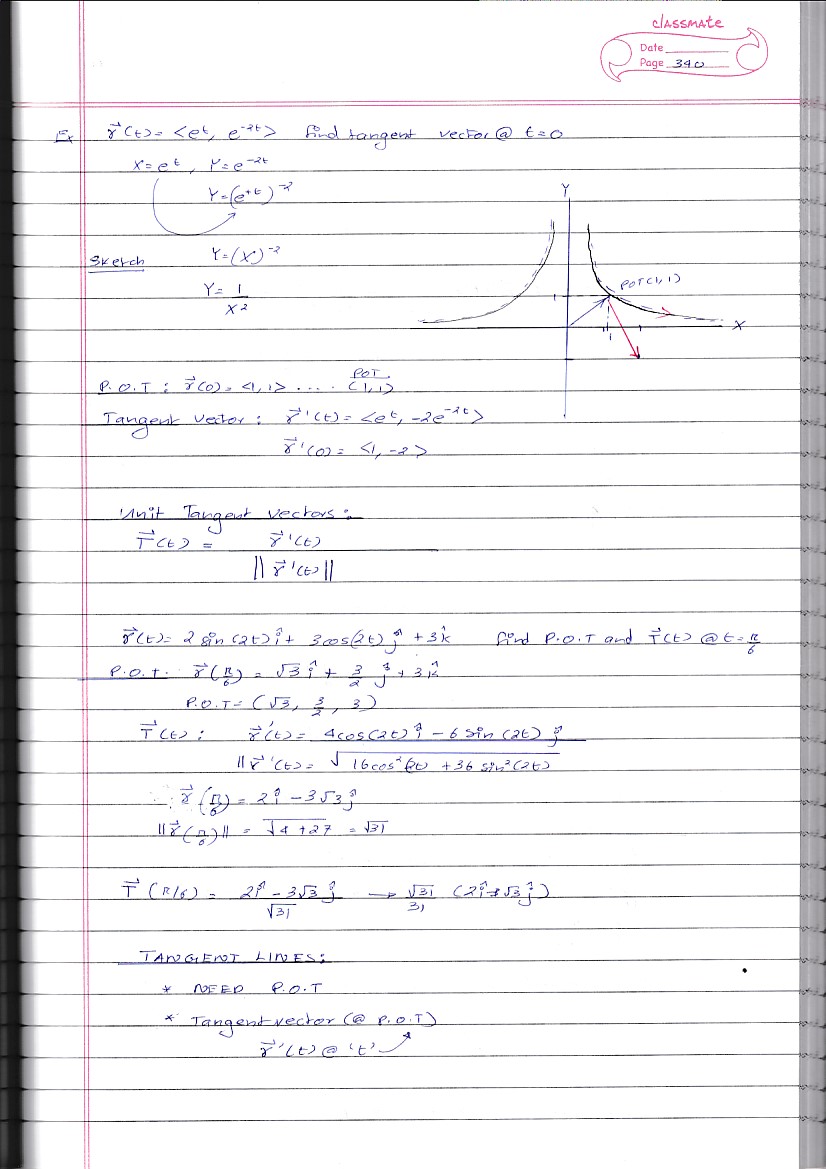 classmate
Date
Page 340
Ex r⃗(t) = <e^t, e^-2t> find tangent vector @ t=0
X=e^t, Y=e^-2t
Y=(e^+t)^-2
Sketch Y=(X)^-2
Y= 1/X²
Y
POT(1,1)
1
X
1
P.O.T : r⃗(0) = <1,1> .... POT (1,1)
Tangent Vector : r⃗'(t) = <e^t, -2e^-2t>
r⃗'(0) = <1, -2>
Unit Tangent Vectors :
T⃗(t) = r⃗'(t) / ||r⃗'(t)||
r⃗(t) = 2 sin(2t)î + 3cos(2t)ĵ + 3k̂ find P.O.T and T⃗(t) @ t=π/6
P.O.T. r⃗(π/6) = √3î + 3/2 ĵ + 3k̂
P.O.T = (√3, 3/2, 3)
T⃗(t) : r⃗'(t) = 4cos(2t)î - 6 sin(2t)ĵ
||r⃗'(t) = √(16cos²(2t) + 36 sin²(2t))
∴ r⃗(π/6) = 2î - 3√3ĵ
||r⃗(π/6)|| = √(4+27) = √31
T⃗(π/6) = (2î - 3√3ĵ)/√31 → √31/31 (2î √3ĵ)
TANGENT LINES:
* NEED P.O.T
* Tangent vector (@ P.O.T)
r⃗'(t) @ 't'